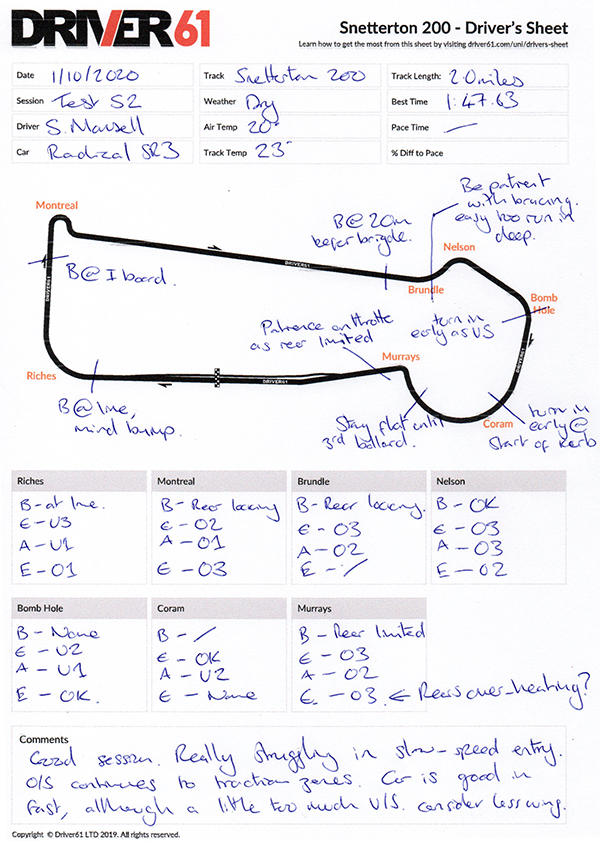 DRIVER61
Snetterton 200 - Driver's Sheet
Learn how to get the most from this sheet by visiting driver61.com/uni/drivers-sheet
Date 1/10/2020
Track Snetterton 200
Track Length: 2.0 miles
Session Test S2
Weather Dry
Best Time 1:47.63
Driver S. Mansell
Air Temp 20°
Pace Time —
Car Radical SR3
Track Temp 23°
% Diff to Pace
Be patient
with bracing.
easy too run in
deep.
Montreal
B@ 20m
befor brigde.
Nelson
DRIVER61
B@ I board.
DRIVER61
Brundle
Bomb
Hole
turn in
early as U/S
Patience on throttle
as rear limited
DRIVER61
Murrays
Riches
DRIVER61
B@ line,
mind bump.
Stay flat until
3rd bollard.
Coram
turn in
early @
Start of kerb
Riches
B - at line.
E - U3
A - U1
E - O1
Montreal
B - Rear locking
E - O2
A - O1
E - O3
Brundle
B - Rear locking.
E - O3
A - O2
E - /
Nelson
B - OK
E - O3
A - O3
E - O2
Bomb Hole
B - None
E - U2
A - U1
E - OK.
Coram
B - /
E - OK
A - U2
E - None
Murrays
B - Rear limited
E - O3
A - O2
E - O3. ← Rears over-heating?
Comments
Good session. Really struggling in slow-speed entry.
O/S continues to traction zones. Car is good in
fast, although a little too much U/S. consider less wing.
Copyright © Driver61 LTD 2019. All rights reserved.